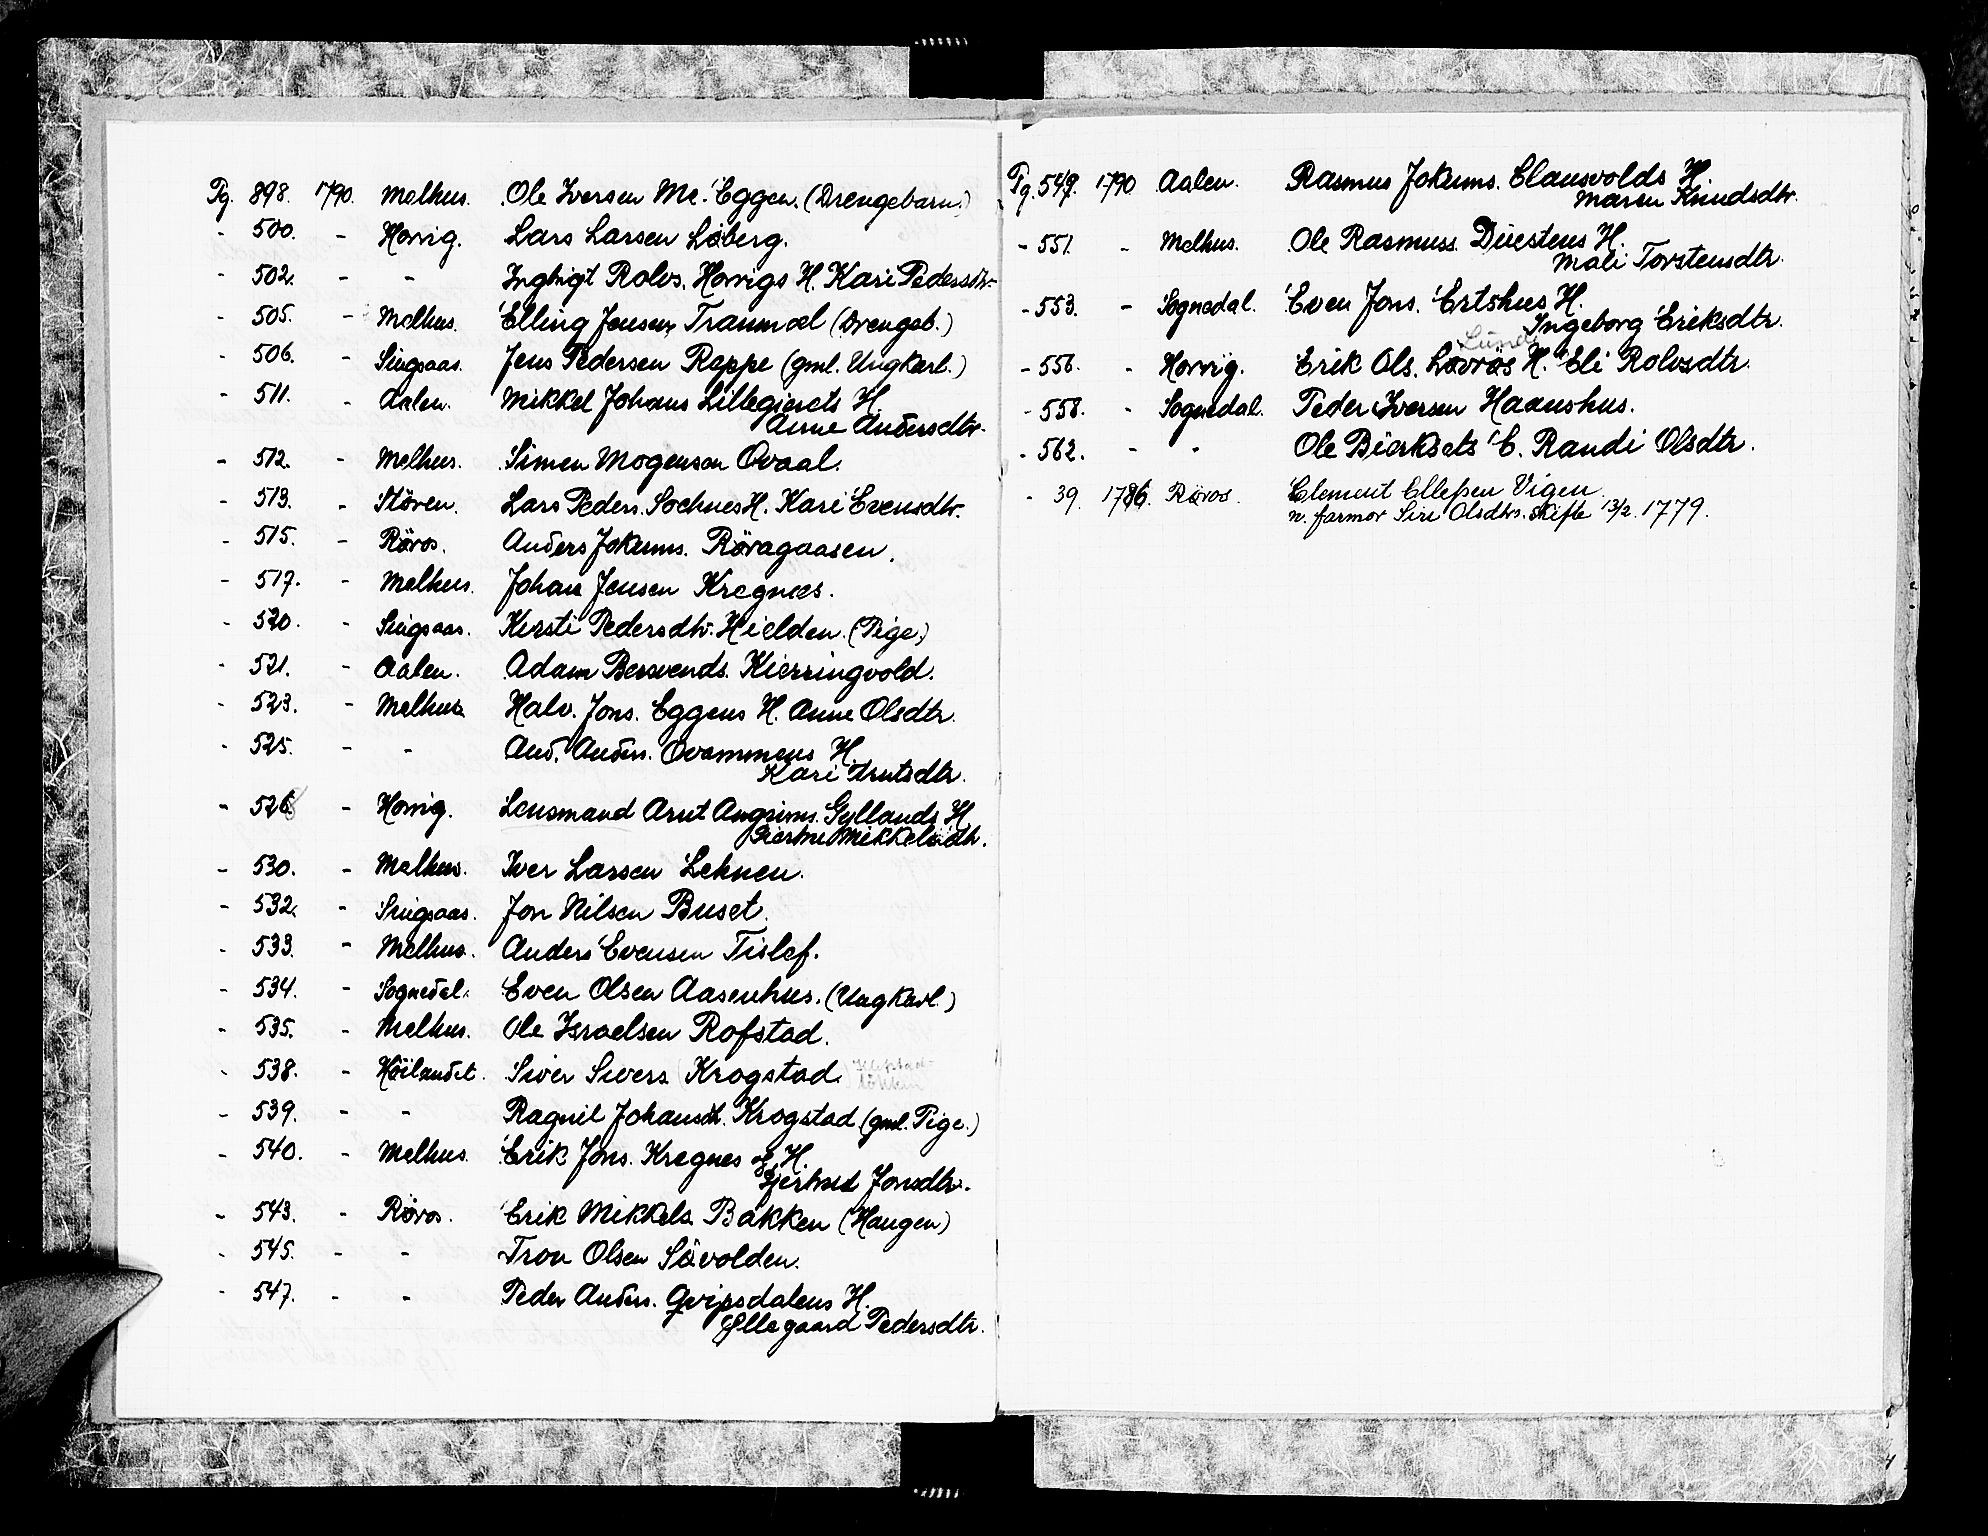 Pg. 898. 1790. Melhus. Ole Iversen Me. Eggen. (Drengebarn.)
- 500. - Horrig. Lars Larsen Løberg.
- 502. - - Rolvs. Horrigs H. Kari Pedersdtr.
- 505. - Melhus. Elling Jensen Trannæl (Drengeb.)
- 506. - Singsaas. Jens Pedersen Rappe (gml. Ungkarl.)
- 511. - Aalen. Mikkel Johans Lillegjerets H.
Anne Andersdtr.
- 512. - Melhus. Simen Mogensen Qvaal.
- 513. - Stören. Lars Peders. Sochnes H. Kari Evensdtr.
- 515. - Røros. Anders Jokums. Röragaasen.
- 517. - Melhus. Johan Jensen Kregnæs.
- 520. - Singsaas. Kirsti Pedersdtr. Hielden. (Pige.)
- 521. - Aalen. Adam Bersvends. Kierringvold.
- 523. - Melhus Halv. Jons. Eggens H. Anne Olsdtr.
- 525. - - And. Anders. Qvammens H.
Kari Arntsdtr.
- 526 - Horrig. Lensmand Arnt Angrims. Gyllands H
Mikkelsdtr.
- 530. - Melhus. Iver Larsen Lehnen.
- 532. - Singsaas. Jon Nilsen Buset.
- 533. - Melhus. Anders Evensen Tislef.
- 534. - Sognedal. Even Olsen Aasenhus. (Ungkarl.)
- 535. - Melhus. Ole Israelsen Rofstad.
- 538. - Höilandet. Siver Sivers Krogstad.
- 539. - - Ragnil Johansdt. Krogstad (gml. Pige.)
- 540. - Melhus. Erik Jons. Kregnes og H.
Gjertrud Jonsdtr.
- 543. - Røros. Erik Mikkels. Bakken (Haugen)
- 545. - - Tron Olsen Sävolden.
- 547. - - Peder Anders. Qvipsdalens H.
Ellegaard Pedersdtr.
Pg. 549. 1790 Aalen. Rasmus Jokums. Elansvolds H.
Maren Knudsdtr.
- 551. - Melhus. Ole Rasmuss. Duestens H.
Mali Torstensdtr.
- 553. - Sognedal. Even Jons. Ertshus H.
Ingeborg Eriksdtr.
Lunde
- 556. - Horrig. Erik Ols. Lovrøs H. Eli Rolvsdtr.
- 558. - Sognedal. Peder Iversen Haanshus.
- 562. - - Ole Biörksets E. Randi Olsdtr.
- 39. 1786. Røros. Clement Ellefsen Vigen.
n. farmor Siri Olsdtrs. skifte 13/2. 1779.